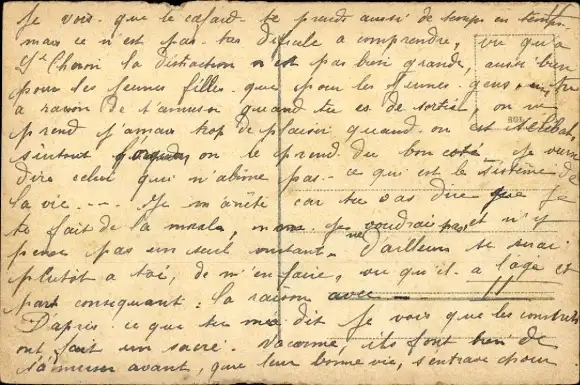 Je vois que le cafard te prends aussi de temps en temps
mais ce n'est pas tres dificile a comprendre, vu qu'a
St Choon la distraction n'est pas bien grande, aussi bien
pour les jeunes filles que pour les jeunes gens,
a raison de t'amuser quand tu es de sortie, on ne
prend jamais trop de plaisir quand on est
surtout quand on le prend du bon coté. Je veux
dire celui qui n'abime pas - ce qui est le sistème de
la vie. --- Je m'arrête car tu vas dire que je
te fait de la morale, mais je ne voudrais pas, et n'y
pense pas un seul instant. D'ailleurs ce serai
plutot a toi, de m'en faire, vu qu'il a l'âge et
part consequant : la raison avec -
D'après ce que tu m'a dit Je vois que les conscrits
ont fait un sacré vacarme, ils font bien de
s'amuser avant, que leur bonne vie, s'entrave pour